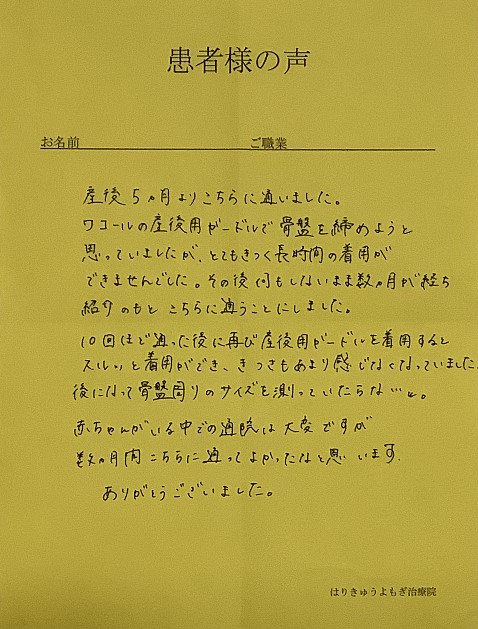 患者様の声
お名前 ご職業
産後5ヵ月よりこちらに通いました。
ワコールの産後用ガードルで骨盤を締めようと
思っていましたが、とてもきつく長時間の着用が
できませんでした。その後何もしないまま数ヵ月が経ち
紹介のもとこちらに通うことにしました。
10回ほど通った後に再び産後用ガードルを着用すると
スルッと着用ができ、きつさもあまり感じなくなっていました。
後になって骨盤周りのサイズを測っていたらな…。
赤ちゃんがいる中での通院は大変ですが
数ヵ月間こちらに通ってよかったなと思います。
ありがとうございました。
はりきゅうよもぎ治療院